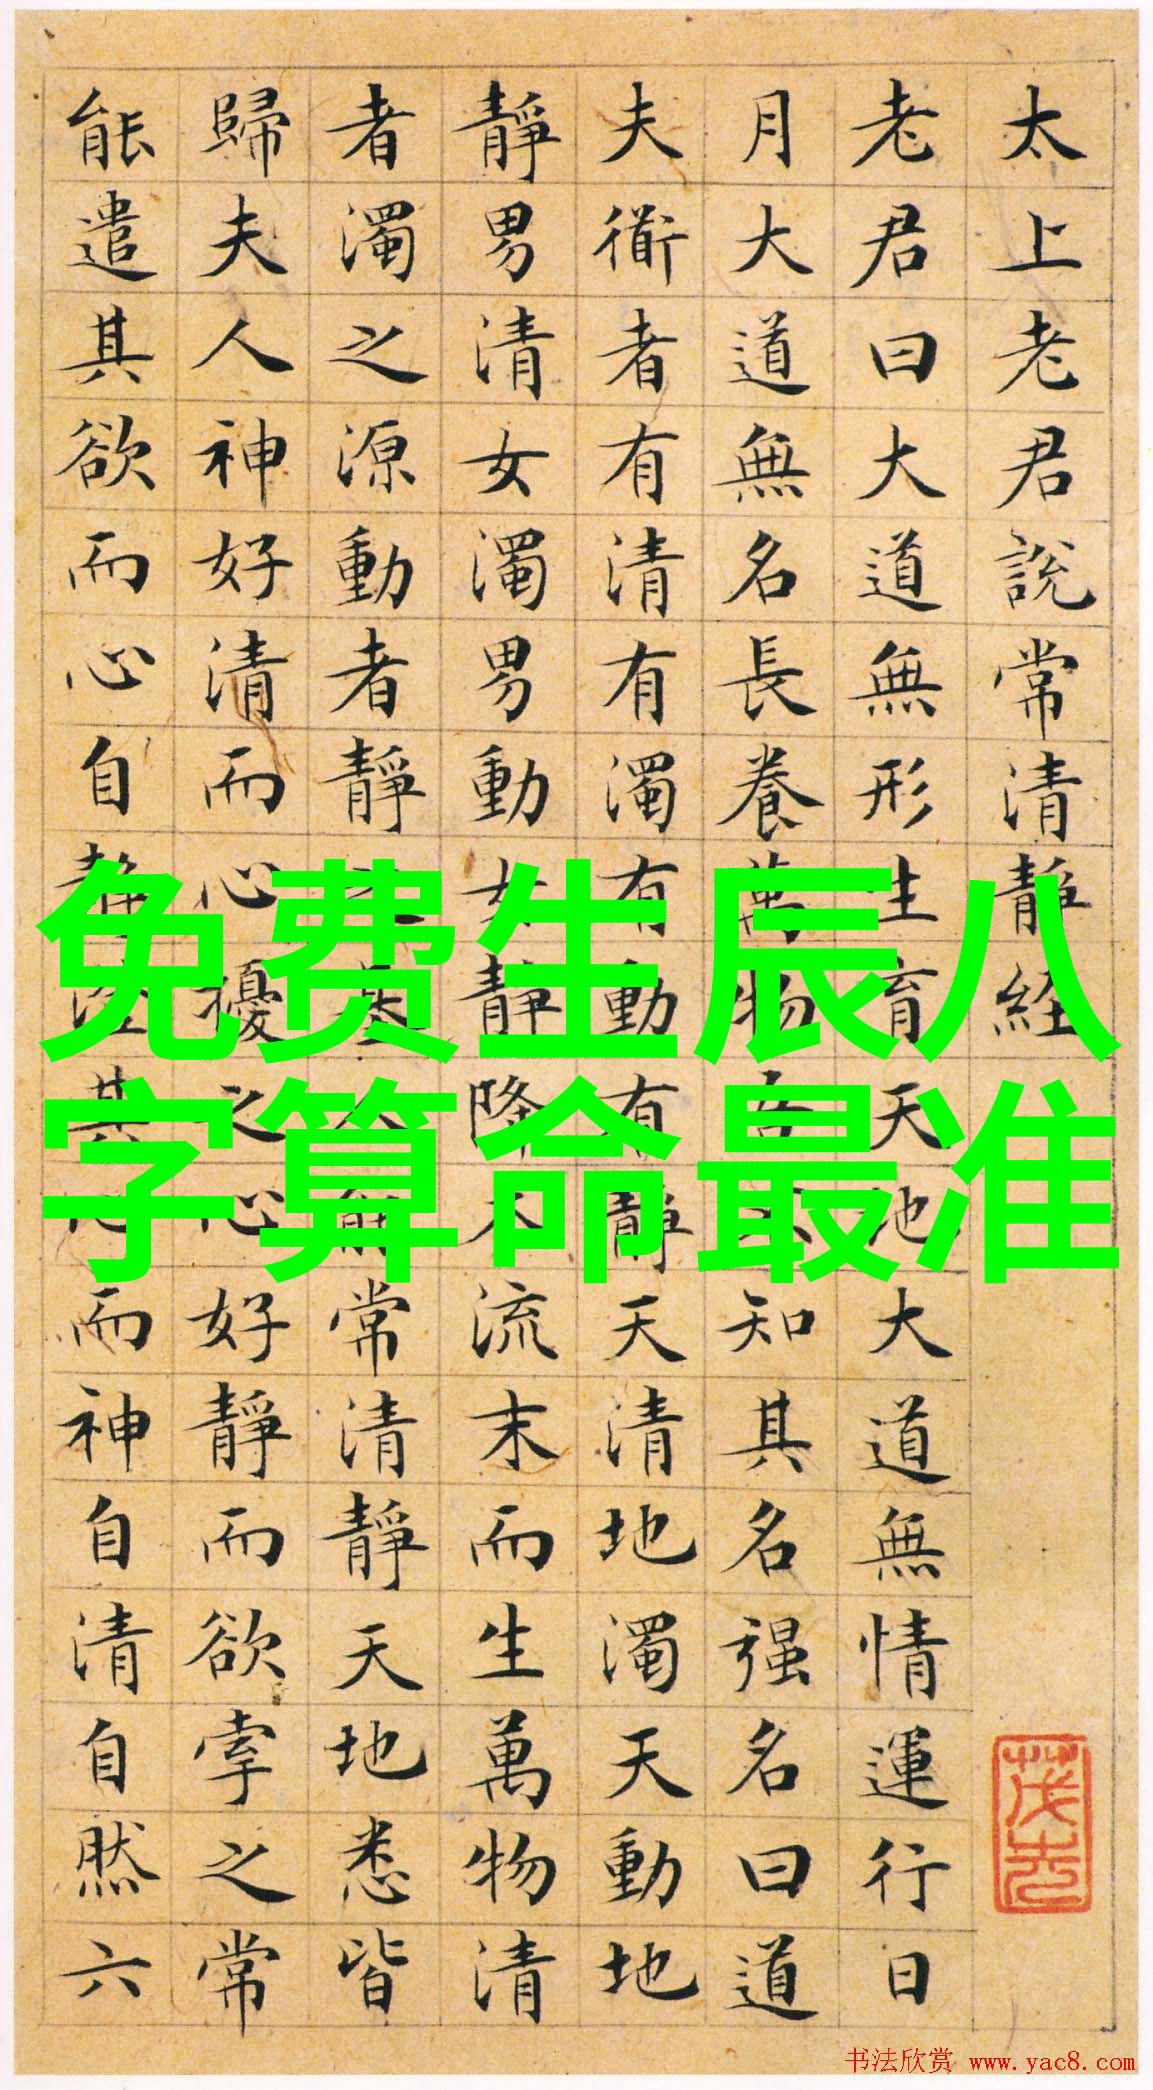 太上老君說常清靜経
老君曰大道無形生育天地大道無情運行日
月大道無名長養萬物吾不知其名强名曰道
夫衜者有清有濁有動有靜天清地濁天動地
靜男清女濁男動女靜降本流末而生萬物清
者濁之源動者靜之基人能常清靜天地悉皆
歸夫人神好清而心擾之心好靜而欲牽之常
能遣其欲而心自靜澄其心而神自清自然六
免费生辰八
字算命最准
书法欣赏 www.yac8.com